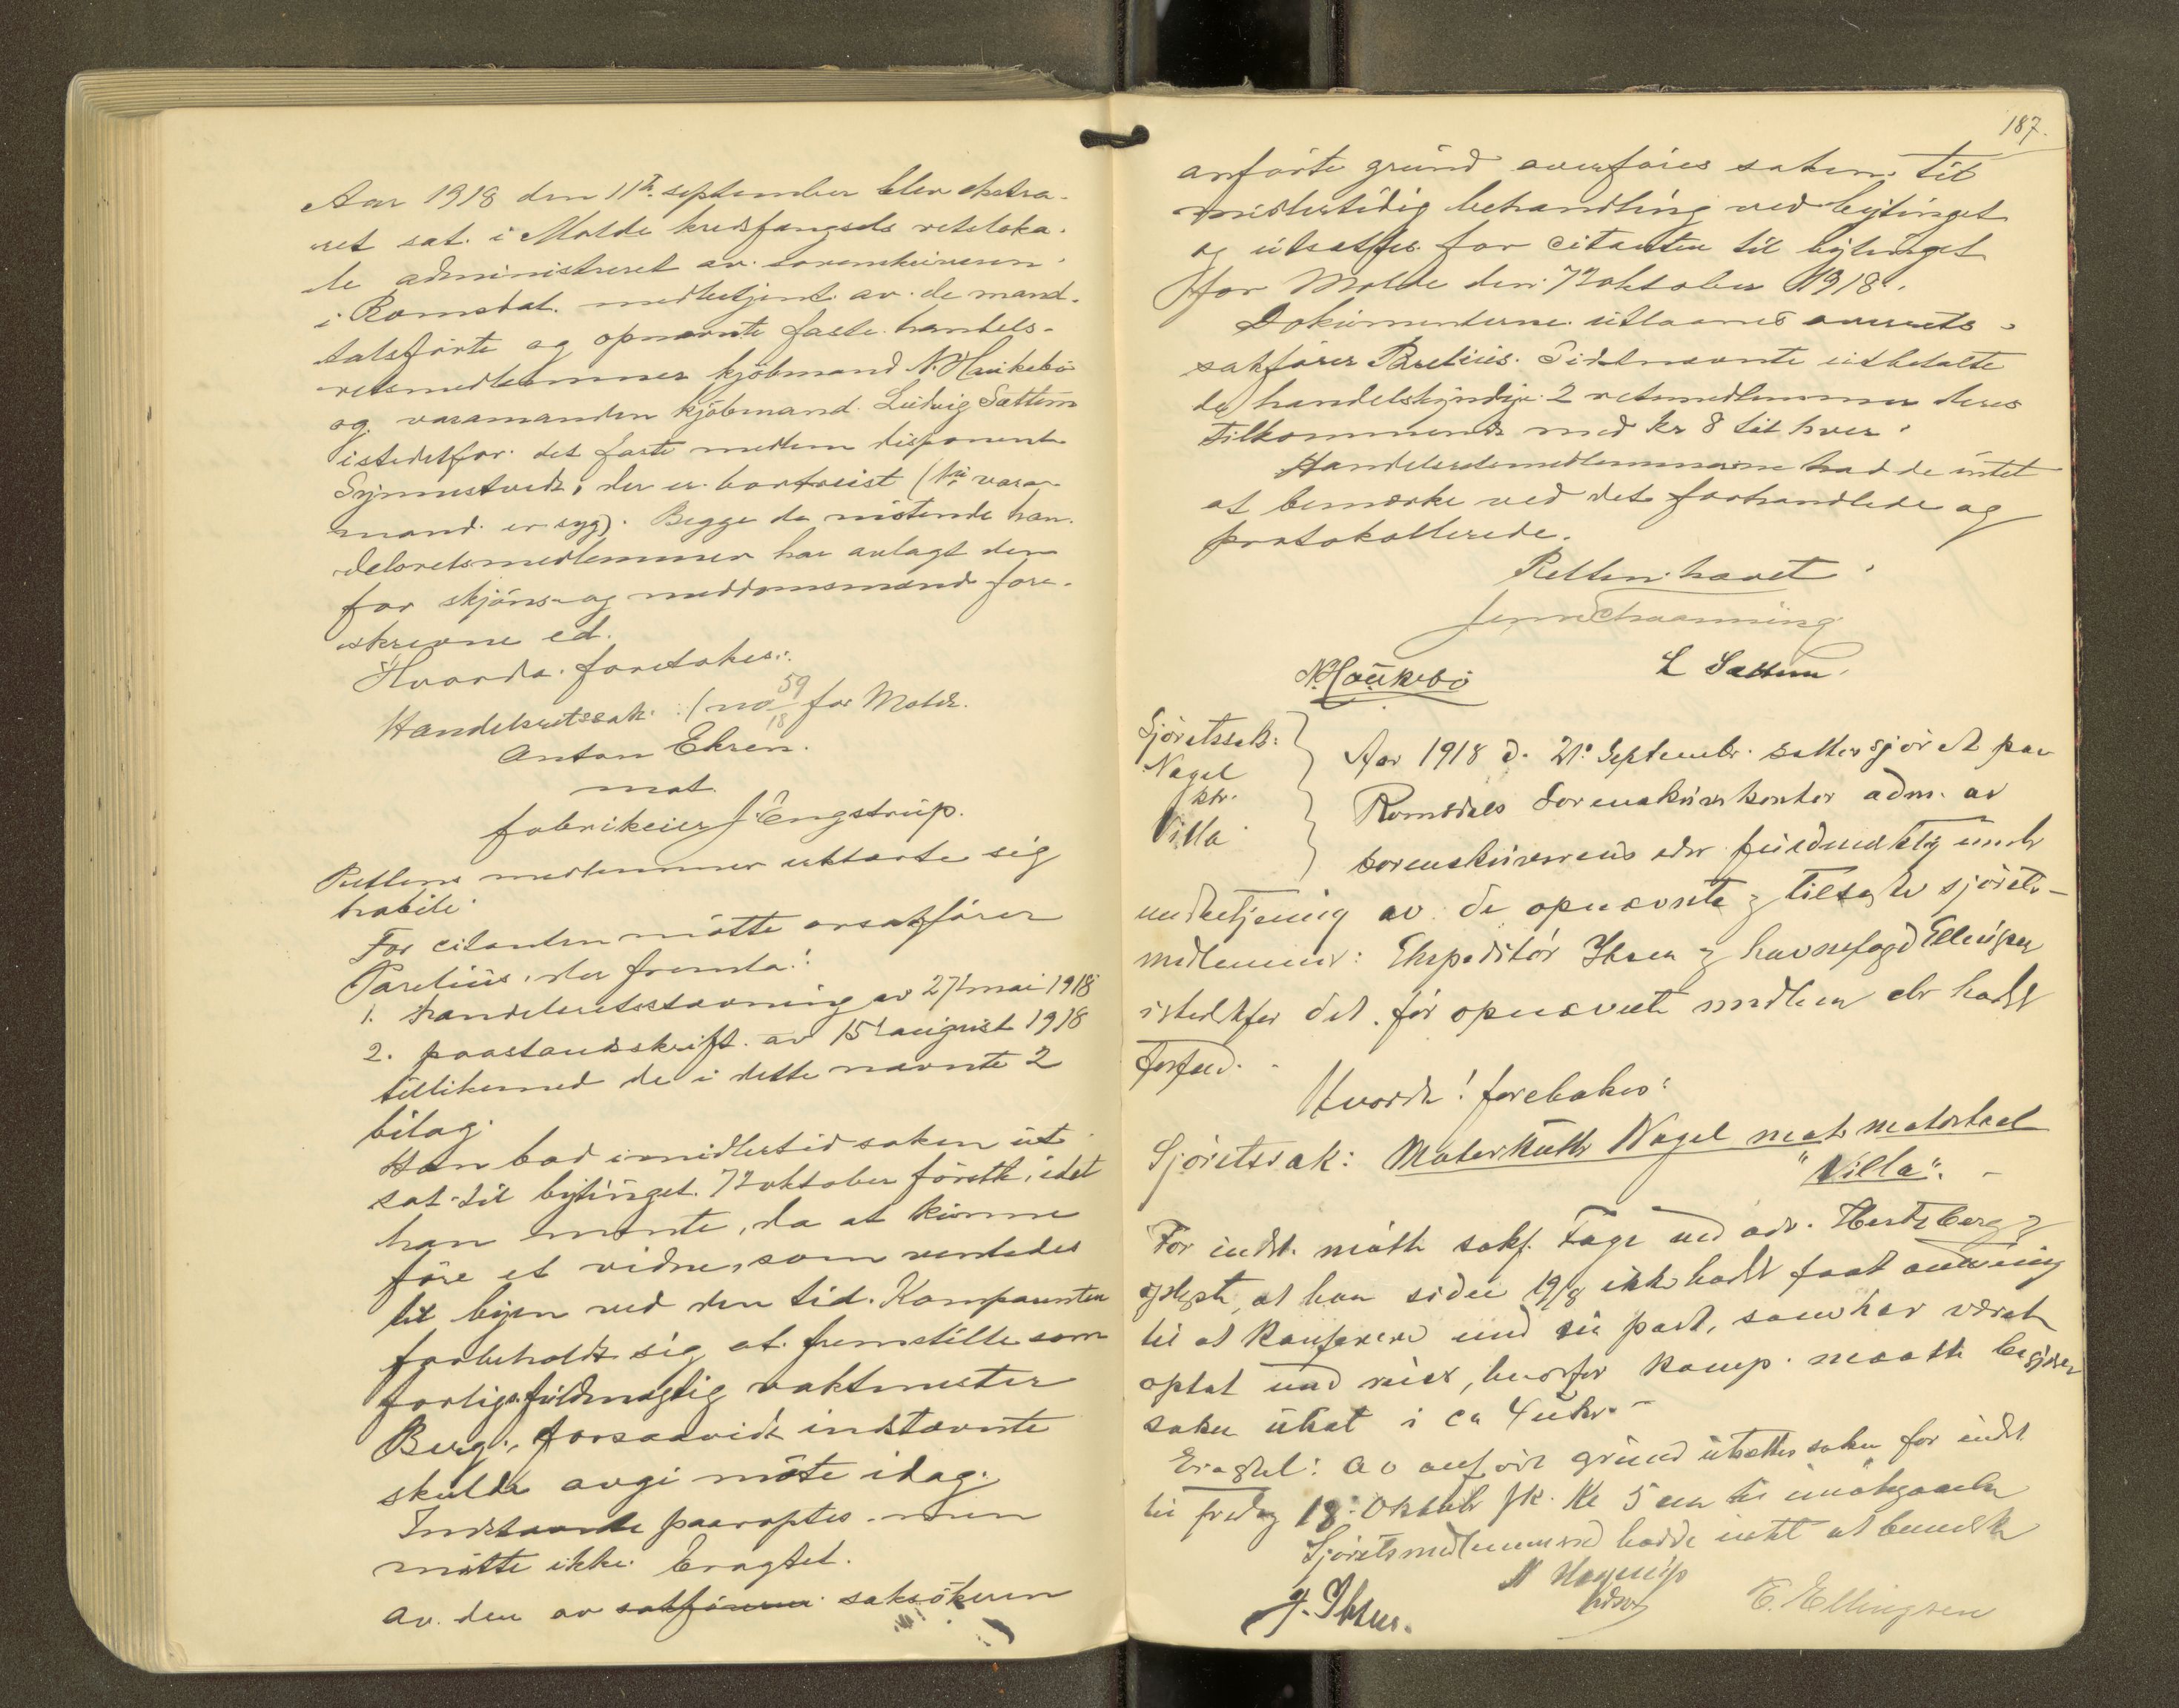 Aar 1918 den 11te september blev ekstra-
ret sat i Molde kredsfængsels retsloka-
le administreret av sorenskriveren
i Romsdal medbetjent av de mand-
talsførte og opnævnte faste handels-
retsmedlemmer kjøbmand N. Haukebø
og varamanden kjøbmand Ludvig Sættem
istedetfor det faste medlem disponent
der er bortreist (1ste vara-
mand er syg). Begge de møtende han-
delsretsmedlemmer har avlagt den
for skjøns- og meddomsmænd fore-
skrevne ed.
Hvorda foretokes:
Handelsretssak: (no 59/18 for Molde.
Anton Ekren.
mot
fabrikeier J. Engstrup.
Rettens medlemmer erklærte sig
habile.
For citanten møtte orsakfører
Parelius, der fremla:
1. Handelsretsstævning av 27/ mai 1918
2. paastandsskrift av 15/ august 1918
tillikemed de i dette nævnte 2
bilag.
Han bad imidlertid saken ut-
sat til bytinget 7/ oktober førstk, idet
han mente, da at kunne
føre et vidne, som ventedes
til byen ved den tid. Komparenten
forbeholdt sig at fremstille som
forligsfuldmægtig vaktmester
Berg, forsaavidt indstævnte
skulde avgi møte idag.
Indstævnte paaroptes men
møtte ikke. Eragtet.
Av den av sakføreren saksøkeren
187.
anførte grund overføies saken til
midlertidig behandling ved bytinget
og utsættes for citanten til bytinget
for Molde den 7/ oktober 1918.
Dokumenterne utlaanes overrets-
sakfører Parelius. Sidstnævnte utbetalte
de handelskyndige 2 retsmedlemmer deres
tilkommende med kr 8 til hver.
Handelsretsmedlemmerne hadde intet
at bemærke ved det forhandlede og
protokollerede.
Retten hævet
Jens Chr
N. Haukebø L Sættem
Sjøretssak:
Nagel
ktr.
Villa
Aar 1918 d. 21. Septembr. sattes sjøret paa
Romsdals Sorenskriverkontor adm. av
sorenskriverens edsv fuldmægtig under
medbetjening av de opnævnte og tilsagte sjørets-
medlemmer: Ekspeditør Ibsen og havnefogd Ellingsen
istedetfor det før opnævnte medlem der hadde
forfald.
Hvorda! foretokes:
Sjøretssak: Motorkutter Nagel mot motorbaat
"Villa". -
For indst. møtte sakf. Fage ved adv. Hertzberg og
oplyste, at han siden 19/8 ikke hadde faat anledning
til at konferere med sin part, som har været
optat med reise, hvorfor komp. maatte begjære
saken utsat i ca 4 uker. -
Eragtet: Av anført grund utsættes saken for indst
til fredag 18. Oktober fk. Kl 5 em til imøtegaaelse
Sjøretsmedlemmerne hadde intet at bemerke
J. Ibsen. E. Ellingsen